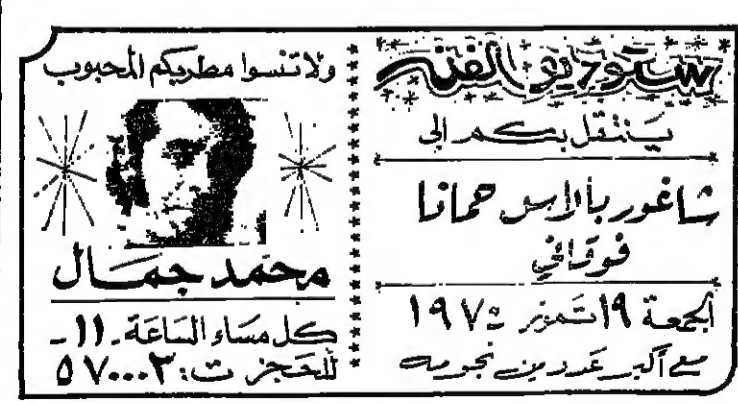 ستوديو الفن
ينتقل بكم الى
شاغور بالاس حمانا
فوقاني
الجمعة ١٩ تموز ١٩٧٤
مع أكبر عدد من نجومه
ولا تنسوا مطربكم المحبوب
محمد جمال
كل مساء الساعة - ١١ -
للحجز ت: ٥٧٠٠٠٣